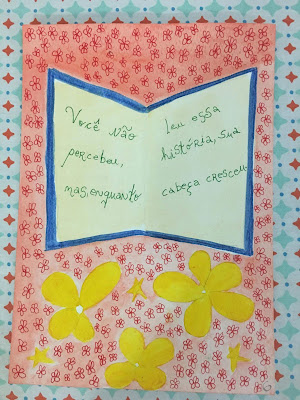 Você não
percebeu,
mas, enquanto
leu essa
história, sua
cabeça cresceu